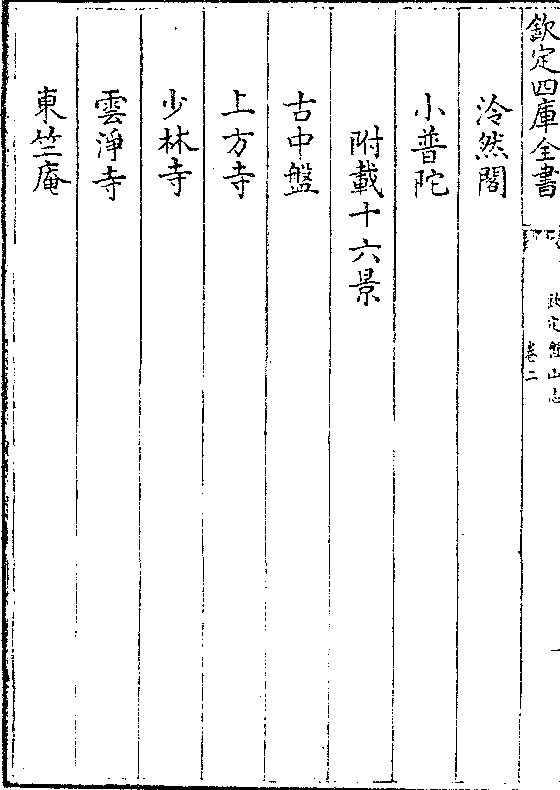 欽定四庫全書
欽定盤山志
卷二
泠然閣
小普陀
附載十六景
古中盤
上方寺
少林寺
雲淨寺
東竺庵